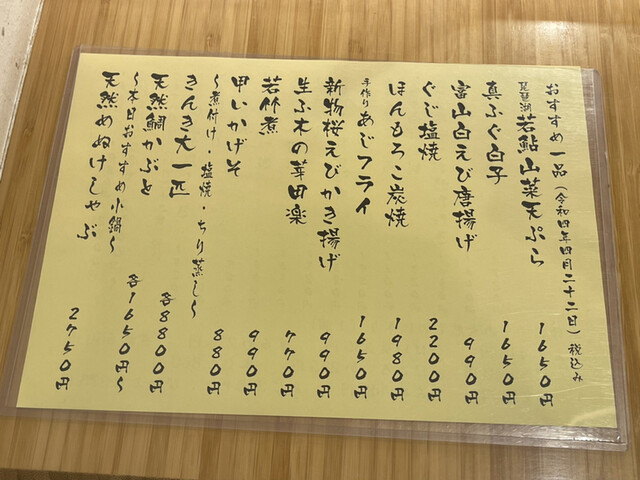 おすすめ一品(令和四年四月二十二日)税込み
琵琶湖 若鮎山菜天ぷら 1650円
真ふぐ白子 1650円
富山白えび唐揚げ 990円
ぐじ塩焼 2200円
ほんもろこ炭焼 1980円
手作りあじフライ 1650円
新物桜えびかき揚げ 990円
生ふ木の芽田楽 770円
若竹煮 990円
甲いかげそ 880円
～煮付け・塩焼・ちり蒸し～
きんき大一匹 各8800円
天然鯛かぶと 各1650円～
～本日おすすめ小鍋～
天然めぬけしゃぶ 2750円